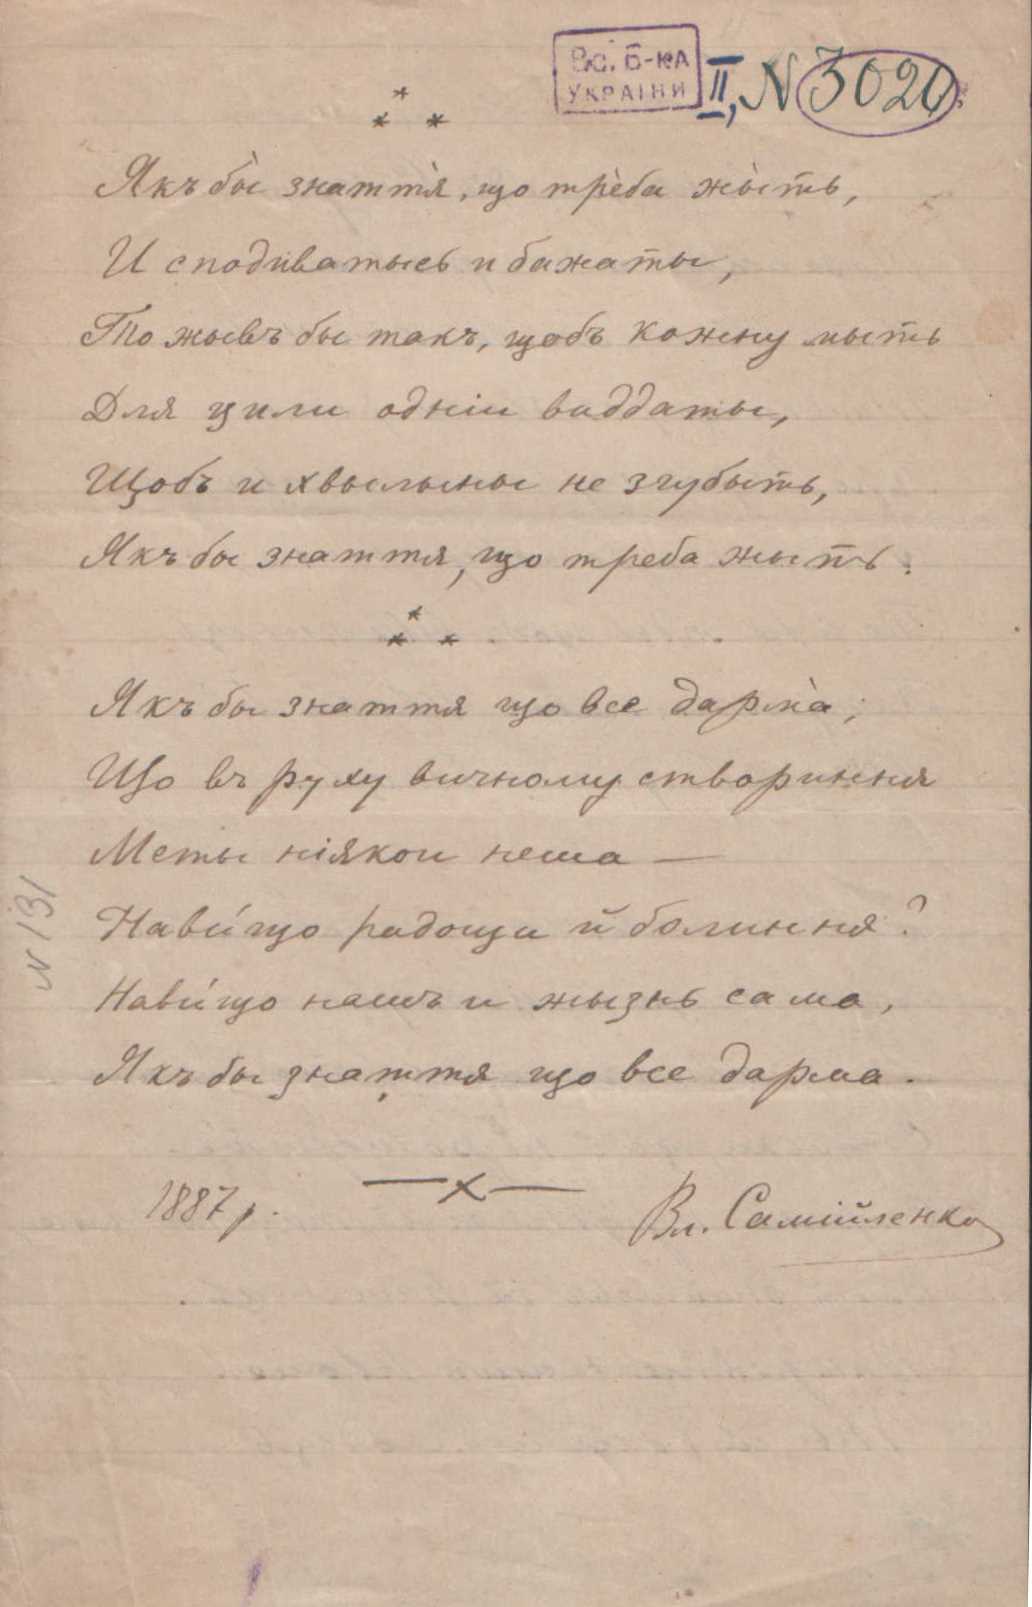 Вс. Б-ка
України
II, N 3020
* * *
Якъ бы̀ знаття̀, що трѐба жы̀ть,
И сподиватысь и бажаты,
То жывъ бы такъ, щобъ кожну мыть
Для цили одніи виддаты,
Щобъ и хвылыны не згубыть,
Якъ бы знаття, що треба жыть.
* * *
Якъ бы знаття що все дарма̀;
Що въ руху вичному створиння
Меты ніякои нема —
Нави́що радощи й болиння?
Нави́що намъ и жызнь сама,
Якъ бы знаття що все дарма.
1887 р. —x— Вл. Самійленко
N 131